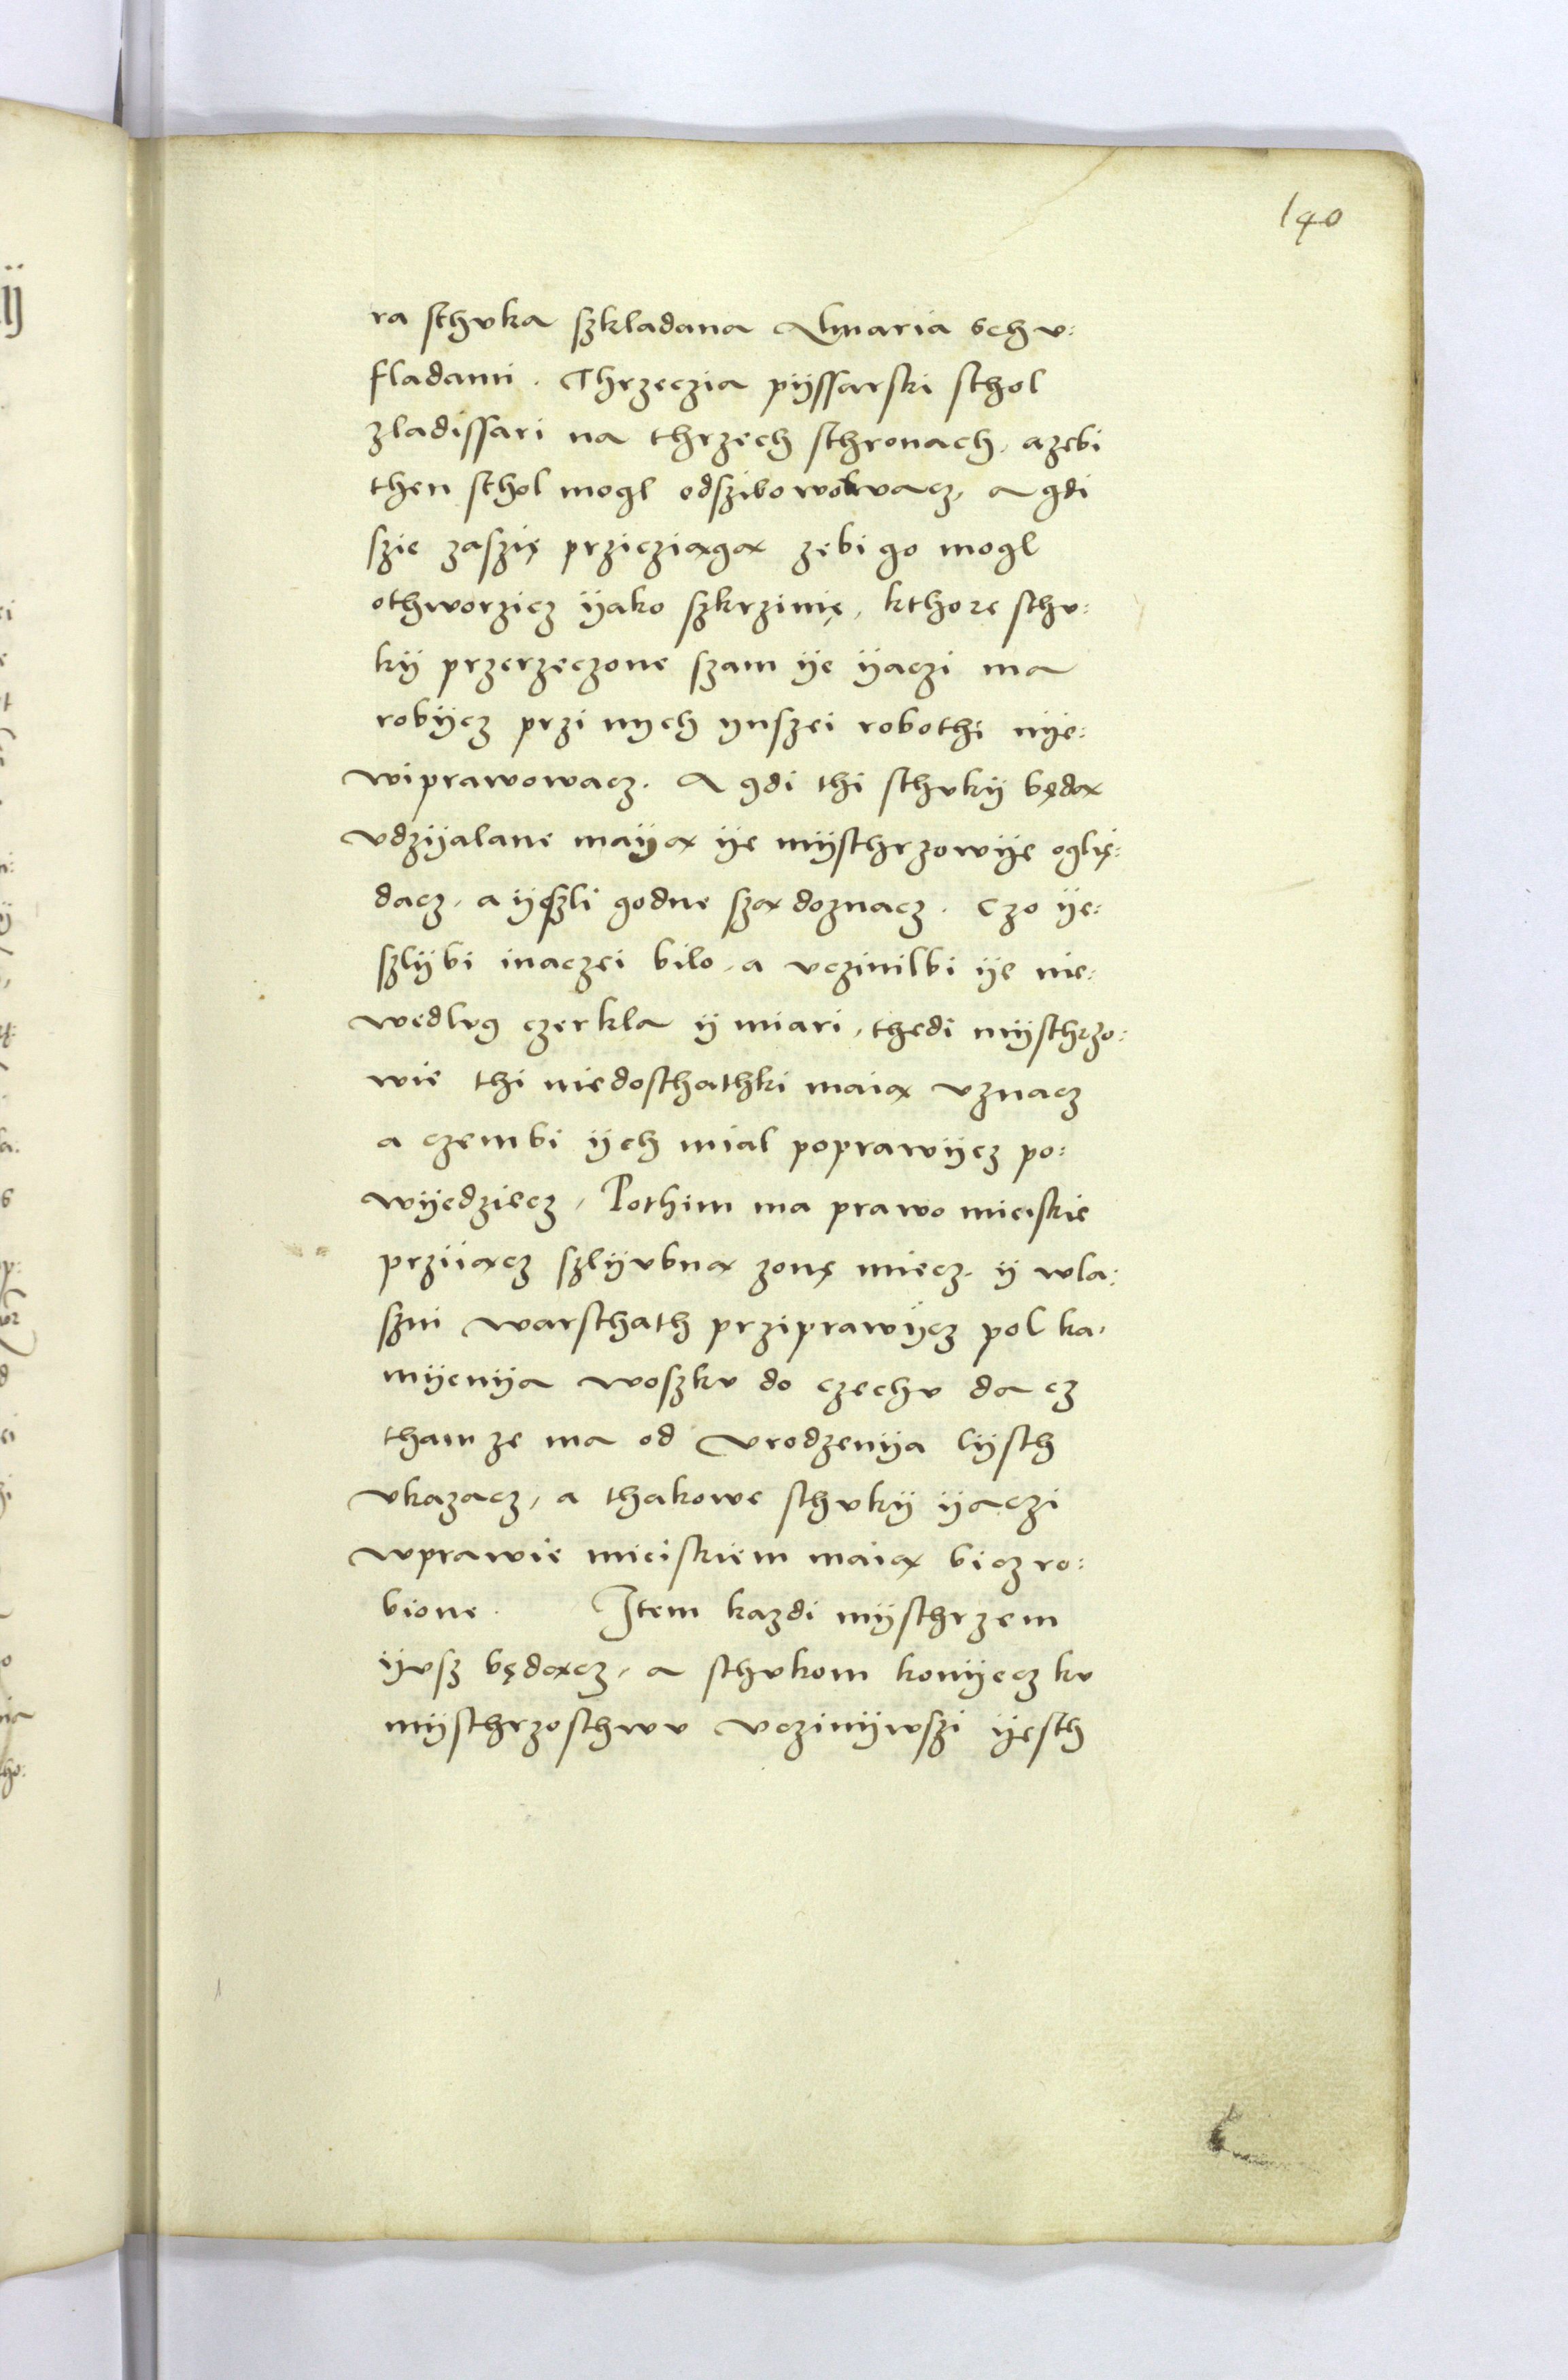 140
ra schvka szkladana Almaria schv:
fladami. Thrzeczia pijssarski schol
zladissari na thrzech schronach, azebi
then schol mogl odszibowowacz, a gdi
szie zaszię prziczią̨gą zebi go mogl
othworzicz ijako szkrzinię, kthore schv:
kij przerzeczone szam ije ijaczi ma
robijcz przi nych ynszei robothi nije:
wiprawowacz. A gdi thi schvkij będą
vdzijalane maiją ije mijschrzowije oglię:
dacz, a ijeszli godne szą doznacz. Czo ije:
szlijbi inaczei bilo, a vczinilbi ije nie:
wedlvg czerkla ij miari, thedi mijschrzo:
wie thi niedoschathki maią vznacz
a czembi ijch mial poprawijcz po:
wijedziecz, Pothim ma prawo mieiskie
prziiącz szlijvbną zonę miecz, ij wla:
szni warschath prziprawijcz pol ka:
mijenija woszkv do czechv dacz
tham ze ma od vrodzenija lijsth
vkazacz, a thakowe schvkij ijaczi
wprawie mieiskiem maią bicz ro:
bione. Item kazdi mijschrzem
ijvsz będącz, a schvkom konijecz kv
mijschrzoschwv vczinijwszi ijesth